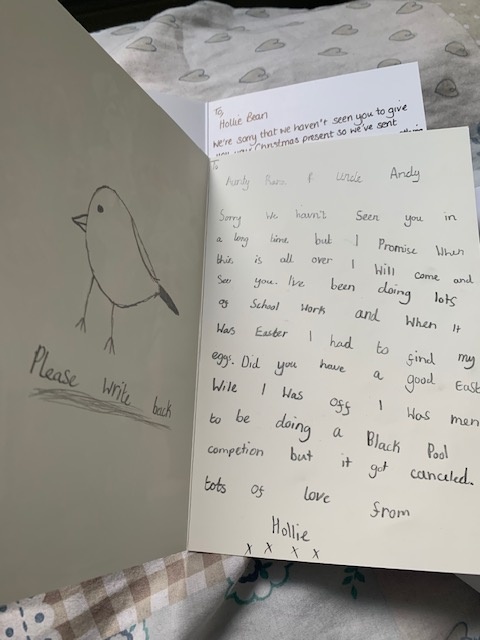 To,
Hollie Bean
We're sorry that we haven't seen you to give
Christmas present so we've sent
To
Aunty & Uncle Andy
Sorry We havn't Seen you in
a long time but I Promise When
this is all over I Will come and
See you. I've been doing lots
of School Work and When it
Was Easter I had to find my
eggs. Did you have a good East
Wile I Was off I Was men
to be doing a Black Pool
competion but it got canceled.
Lots Of love from
Hollie
x x x x
Please write back